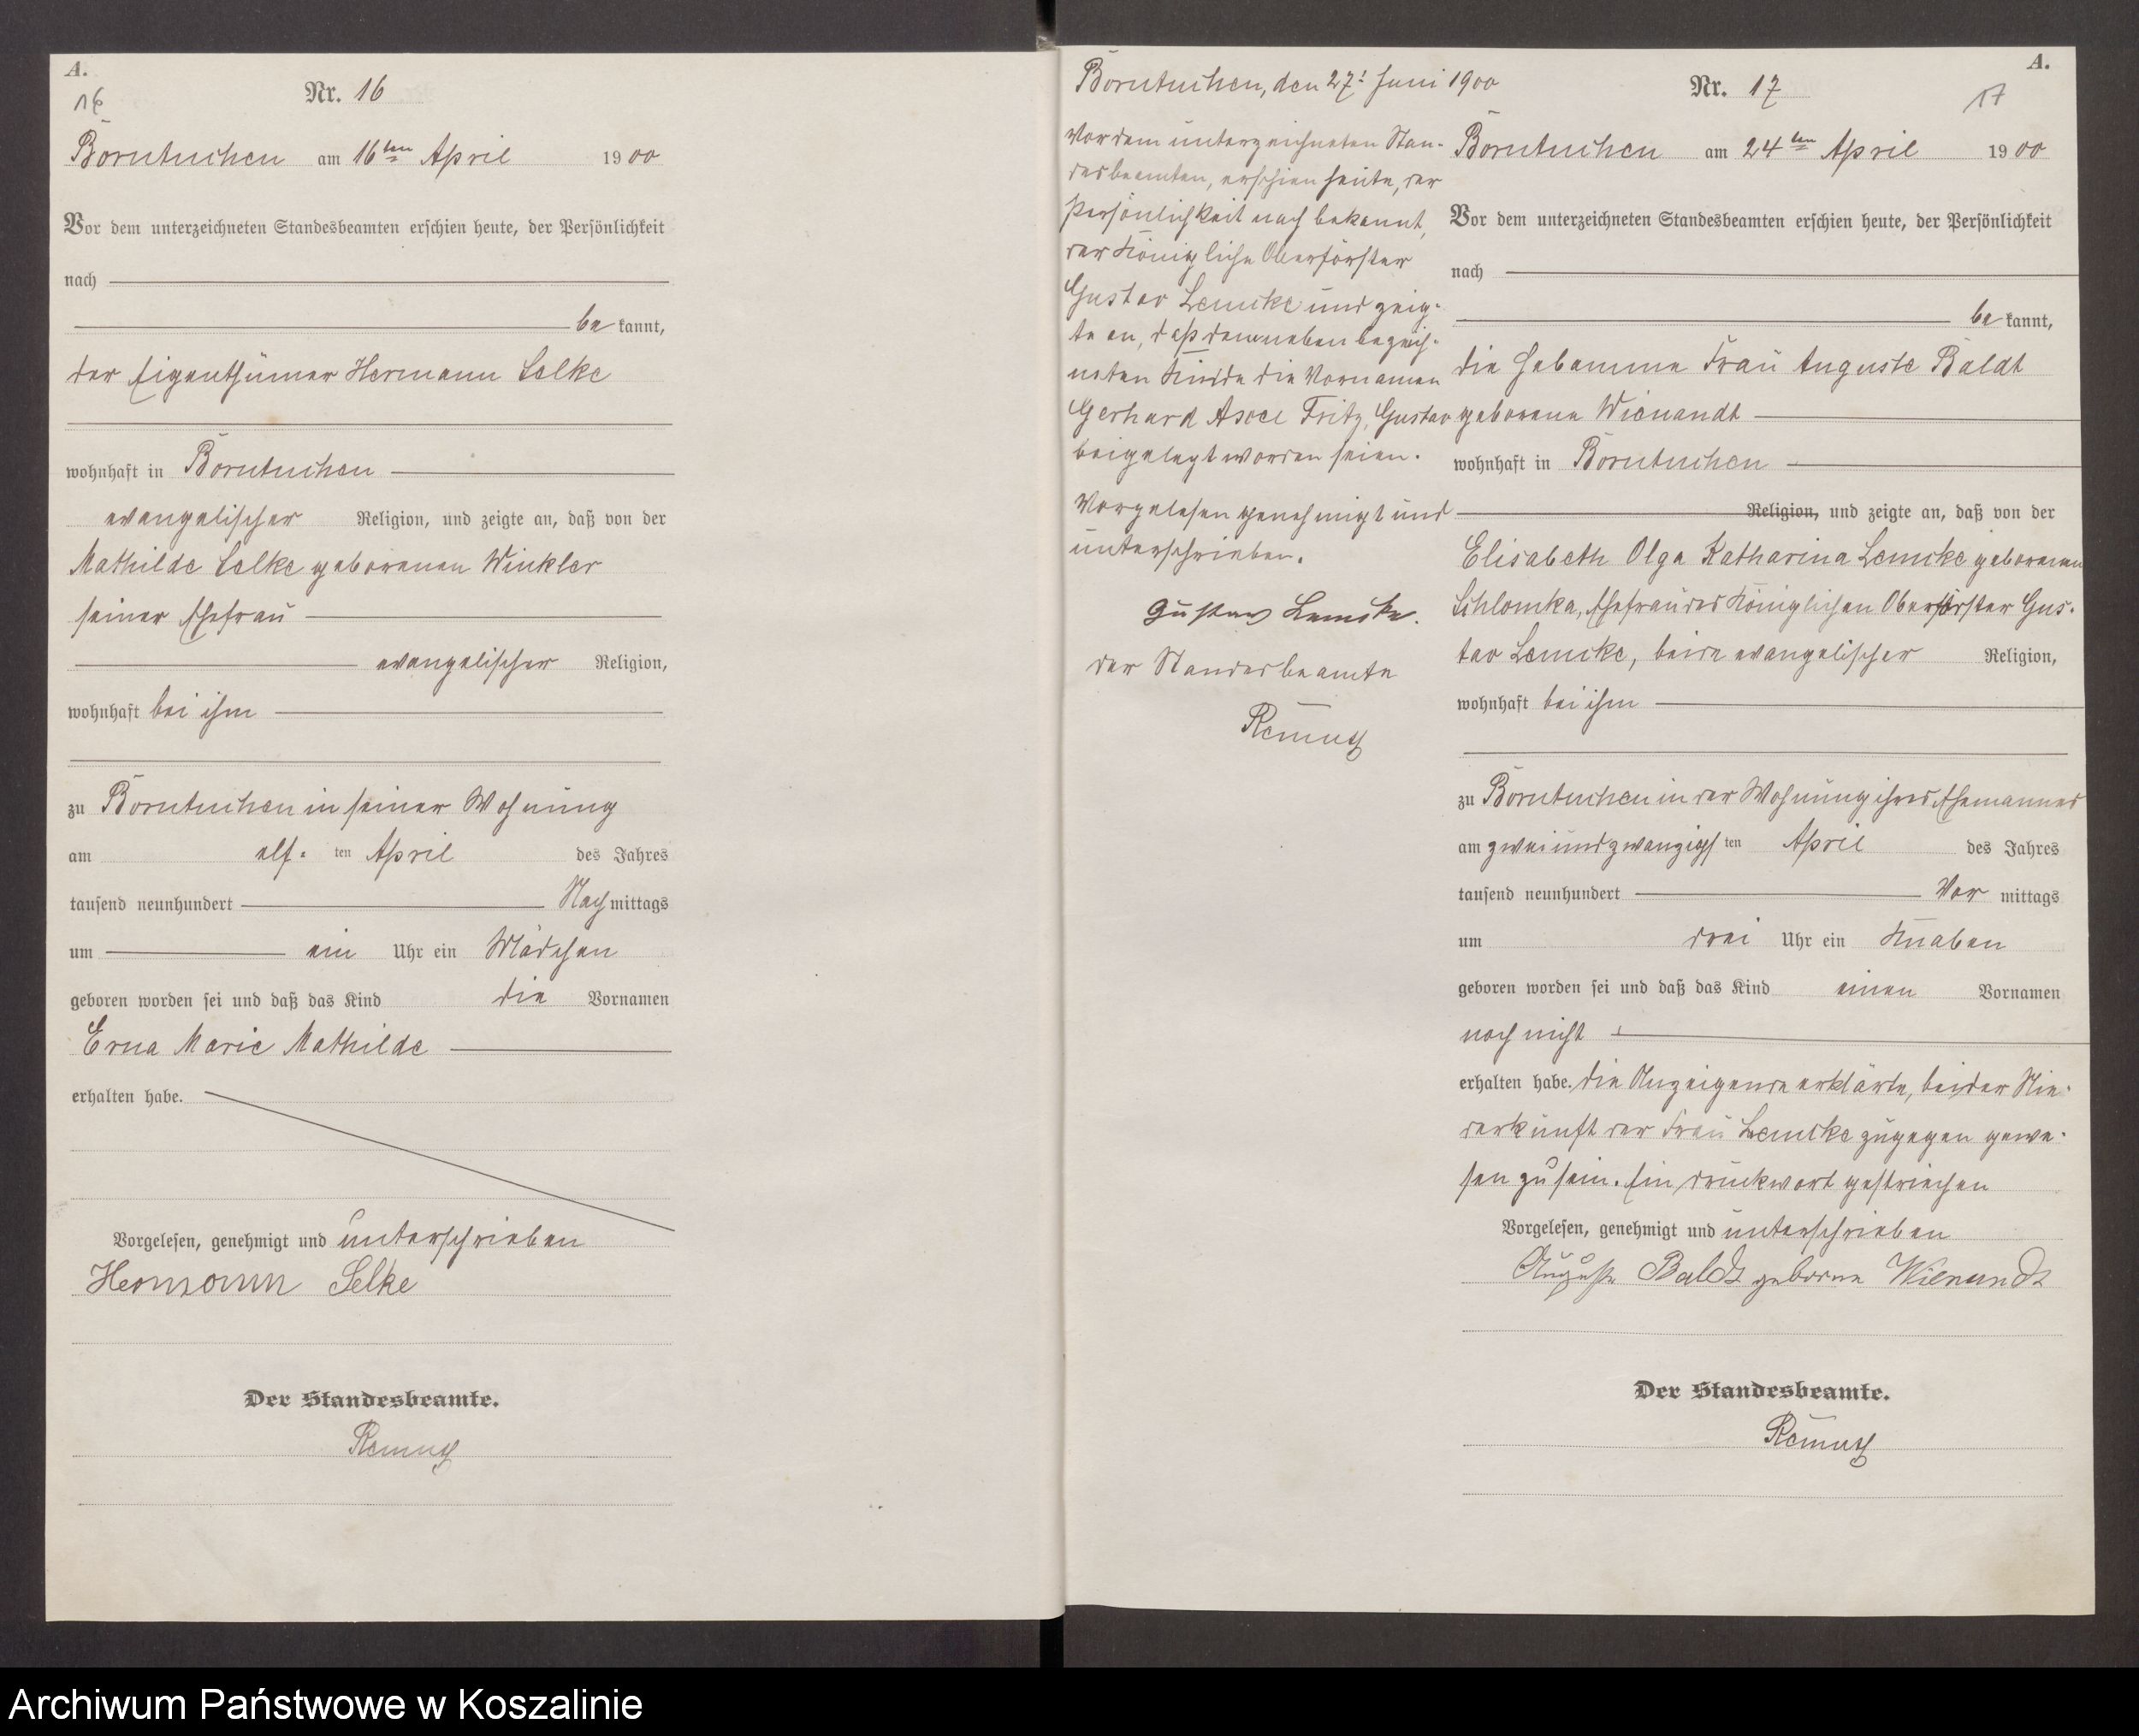 A.
16
Nr. 16
Borntuchen am 16ten April 1900
Vor dem unterzeichneten Standesbeamten erschien heute, der Persönlichkeit
nach
bekannt,
der Eigenthümer Hermann Selke
wohnhaft in Borntuchen
evangelischer Religion, und zeigte an, daß von der
Mathilde Selke geborenen Winkler
seiner Ehefrau
evangelischer Religion,
wohnhaft bei ihm
zu Borntuchen in seiner Wohnung
am elf-ten April des Jahres
tausend neunhundert Nachmittags
um ein Uhr ein Mädchen
geboren worden sei und daß das Kind die Vornamen
Erna Marie Mathilde
erhalten habe.
Vorgelesen, genehmigt und unterschrieben
Hermann Selke
Der Standesbeamte.
Borntuchen, den 27. Juni 1900
Vor dem unterzeichneten Stan-
desbeamten, erschien heute, der
Persönlichkeit nach bekannt,
der Königliche Oberförster
Gustav Lemcke und zeig-
te an, daß dem neben bezeich-
neten Kinde die Vornamen
Gerhard Fritz, Gustav
beigelegt worden seien.
Vorgelesen genehmigt und
unterschrieben.
Gustav Lemcke.
der Standesbeamte
A.
17
Nr. 17
Borntuchen am 24ten April 1900
Vor dem unterzeichneten Standesbeamten erschien heute, der Persönlichkeit
nach
bekannt,
die Hebamme Frau Auguste Baldt
geborene Wienandt
wohnhaft in Borntuchen
Religion, und zeigte an, daß von der
Elisabeth Olga Katharina Lemcke geborenen
Schlomka, Ehefrau des Königlichen Oberförster Gus-
tav Lemcke, beide evangelischer Religion,
wohnhaft bei ihm
zu Borntuchen in der Wohnung ihres Ehemannes
am zweiundzwanzigsten April des Jahres
tausend neunhundert Vormittags
um drei Uhr ein Knaben
geboren worden sei und daß das Kind einen Vornamen
noch nicht
erhalten habe. Die Anzeigende erklärte, bei der Nie-
derkunft der Frau Lemcke zugegen gewe-
sen zu sein. Ein Druckwort gestrichen
Vorgelesen, genehmigt und unterschrieben
Auguste Baldt geborne Wienandt
Der Standesbeamte.
Archiwum Państwowe w Koszalinie